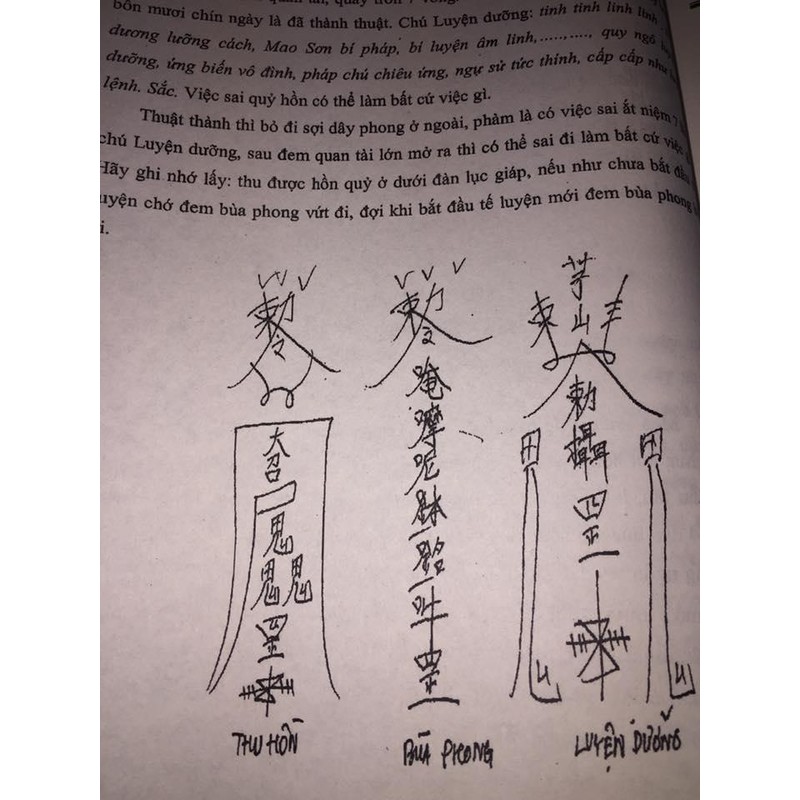 bốn mươi chín ngày là đã thành thuật. Chú Luyện dưỡng: tinh tinh linh linh
dương lưỡng cách, Mao Sơn bí pháp, bí luyện âm linh,………, quy ngô
dưỡng, ứng biến vô đình, pháp chú chiêu ứng, ngự sử tức thính, cấp cấp như
lệnh. Sắc. Việc sai quỷ hồn có thể làm bất cứ việc gì.
Thuật thành thì bỏ đi sợi dây phong ở ngoài, phàm là có việc sai ắt niệm 7
chú Luyện dưỡng, sau đem quan tài lớn mở ra thì có thể sai đi làm bất cứ việc
Hãy ghi nhớ lấy: thu được hồn quỷ ở dưới đàn lục giáp, nếu như chưa bắt đầu
uyện chớ đem bùa phong vứt đi, đợi khi bắt đầu tế luyện mới đem bùa phong
i.
勅令
大召
鬼
鬼鬼
罡
THU HỒN
勅令
唵
摩
呢
罡
BÙA PHONG
茅山
勅
攝
罡
LUYỆN DƯỠNG